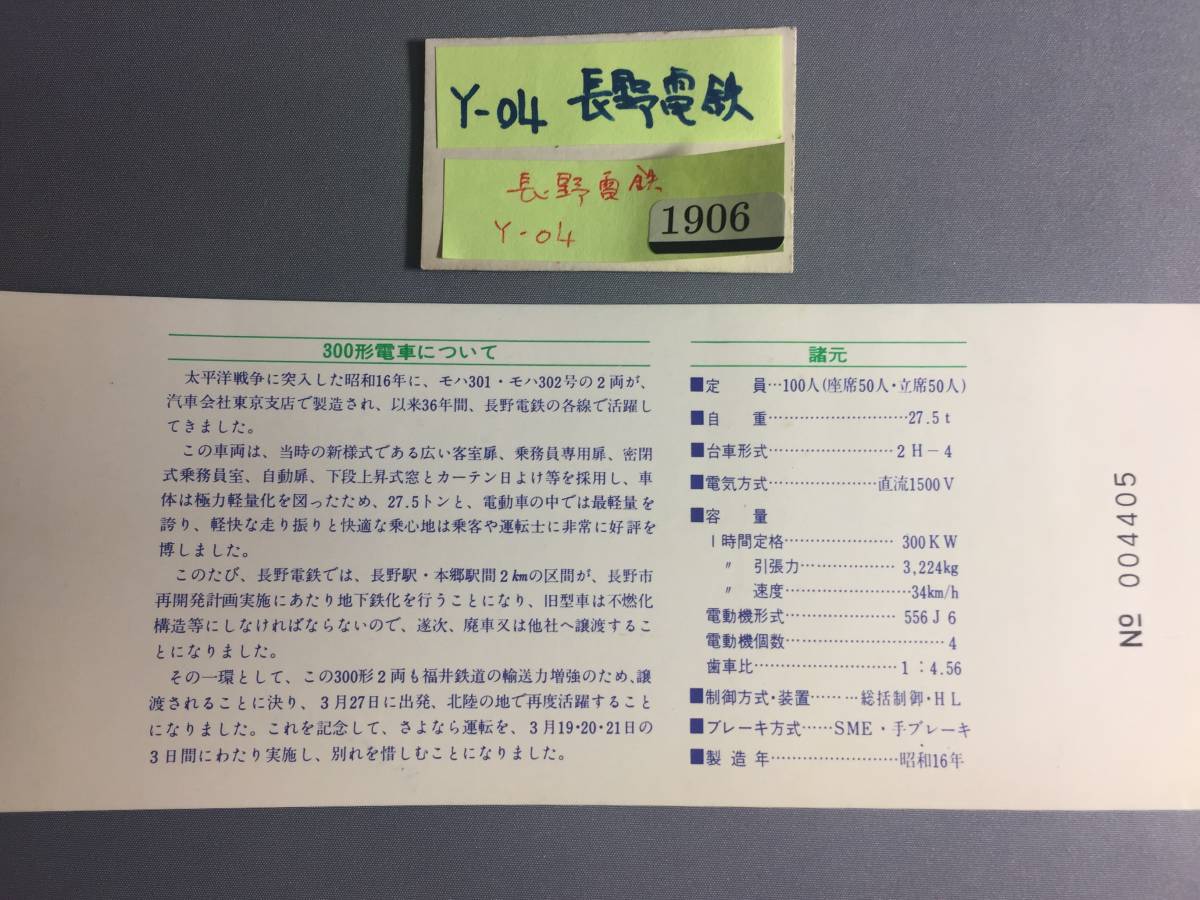 Y-04 長野電鉄
長野電鉄
Y-04
1906
300形電車について
太平洋戦争に突入した昭和16年に、モハ301・モハ302号の2両が、
汽車会社東京支店で製造され、以来36年間、長野電鉄の各線で活躍し
てきました。
この車両は、当時の新様式である広い客室扉、乗務員専用扉、密閉
式乗務員室、自動扉、下段上昇式窓とカーテン日よけ等を採用し、車
体は極力軽量化を図ったため、27.5トンと、電動車の中では最軽量を
誇り、軽快な走り振りと快適な乗心地は乗客や運転士に非常に好評を
博しました。
このたび、長野電鉄では、長野駅・本郷駅間2kmの区間が、長野市
再開発計画実施にあたり地下鉄化を行うことになり、旧型車は不燃化
構造等にしなければならないので、逐次、廃車又は他社へ譲渡するこ
とになりました。
その一環として、この300形2両も福井鉄道の輸送力増強のため、譲
渡されることに決り、3月27日に出発、北陸の地で再度活躍すること
になりました。これを記念して、さよなら運転を、3月19・20・21日の
3日間にわたり実施し、別れを惜しむことになりました。
諸元
■定 員…100人(座席50人・立席50人)
■自 重……………………27.5t
■台車形式…………………2H-4
■電気方式………………直流1500V
■容 量
1時間定格…………………300KW
〃 引張力……………3,224kg
〃 速度………………34km/h
電動機形式…………………556J6
電動機個数………………………4
歯車比……………………1:4.56
■制御方式・装置………総括制御・HL
■ブレーキ方式……SME・手ブレーキ
■製造年……………………昭和16年
№ 004405